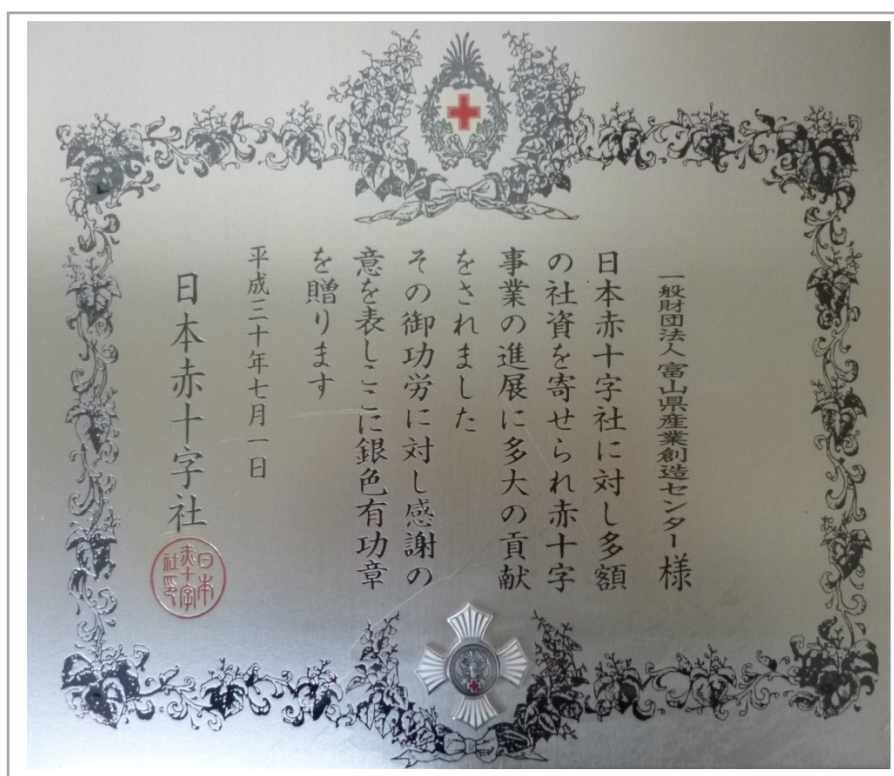 一般財団法人 富山県産業創造センター 様
日本赤十字社に対し多額
の社資を寄せられ赤十字
事業の進展に多大の貢献
をされました
その御功労に対し感謝の
意を表しここに銀色有功章
を贈ります
平成三十年七月一日
日本赤十字社
日本
赤十字
社印